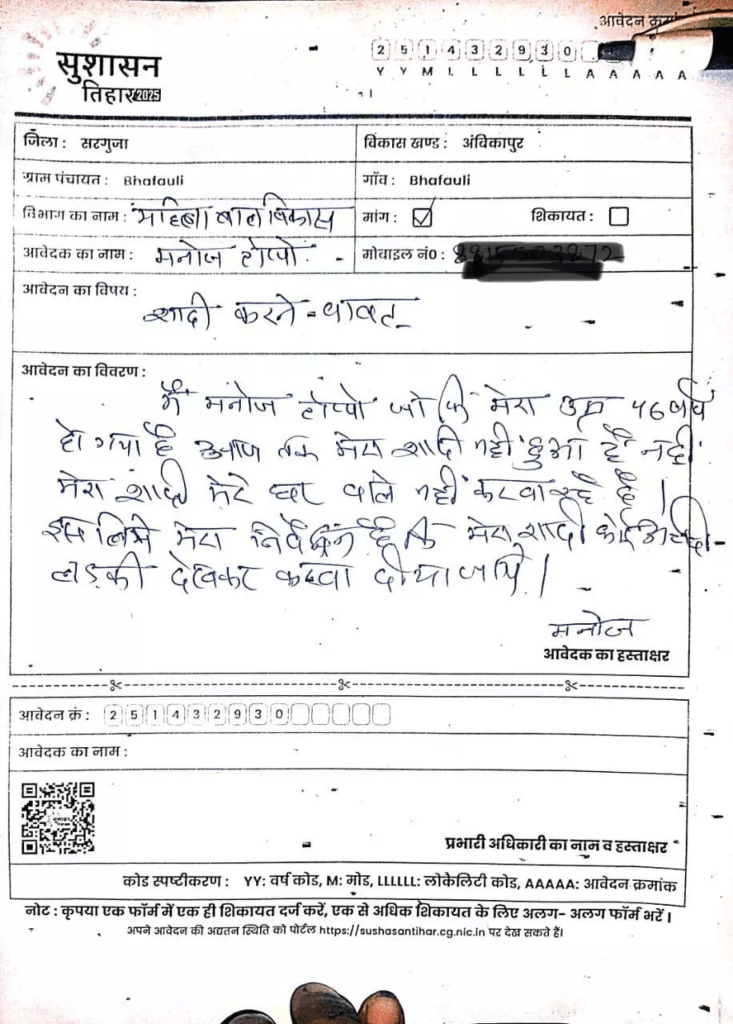 आवेदन क्रमां
सुशासन
तिहार 2025
2 5 1 4 3 2 9 3 0
Y Y M L L L L L L A A A A A
जिला : सरगुजा
विकास खण्ड : अंबिकापुर
ग्राम पंचायत : Bhafauli
गाँव : Bhafauli
विभाग का नाम : महिला बाल विकास
मांग : ☑ शिकायत : ☐
आवेदक का नाम : मनोज टोप्पो
मोबाइल नं0 :
आवेदन का विषय :
शादी करने - बाबत
आवेदन का विवरण :
मैं मनोज टोप्पो जो कि मेरा उम्र 46 वर्ष
हो गया है आज तक मेरा शादी नहीं हुआ है नहीं
मेरा शादी मेरे घर वाले नहीं करवा रहे है।
इस लिये मेरा निवेदन है कि मेरा शादी कोई अच्छी -
लड़की देखकर करवा दीया जाये।
मनोज
आवेदक का हस्ताक्षर
आवेदन क्रं : 2 5 1 4 3 2 9 3 0
आवेदक का नाम :
प्रभारी अधिकारी का नाम व हस्ताक्षर
कोड स्पष्टीकरण : YY: वर्ष कोड, M: मोड, LLLLLL: लोकैलिटी कोड, AAAAA: आवेदन क्रमांक
नोट : कृपया एक फॉर्म में एक ही शिकायत दर्ज करें, एक से अधिक शिकायत के लिए अलग- अलग फॉर्म भरें।
अपने आवेदन की अद्यतन स्थिति को पोर्टल https://sushasantihar.cg.nic.in पर देख सकते हैं।